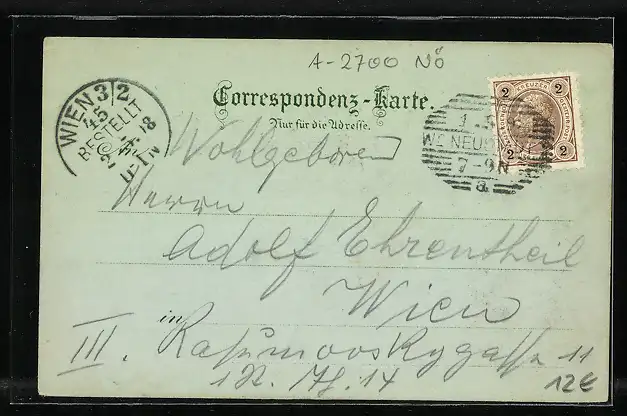 A-2700 NÖ
Correspondenz-Karte.
Nur für die Adresse.
WIEN 3/2
45
BESTELLT
2 KREUZER 2
2 2
Wr NEUST
7-9N
a
Wohlgeboren
Herrn
Adolf Ehrentheil
Wien
in
III. Rasumovskygasse 11
14
12€